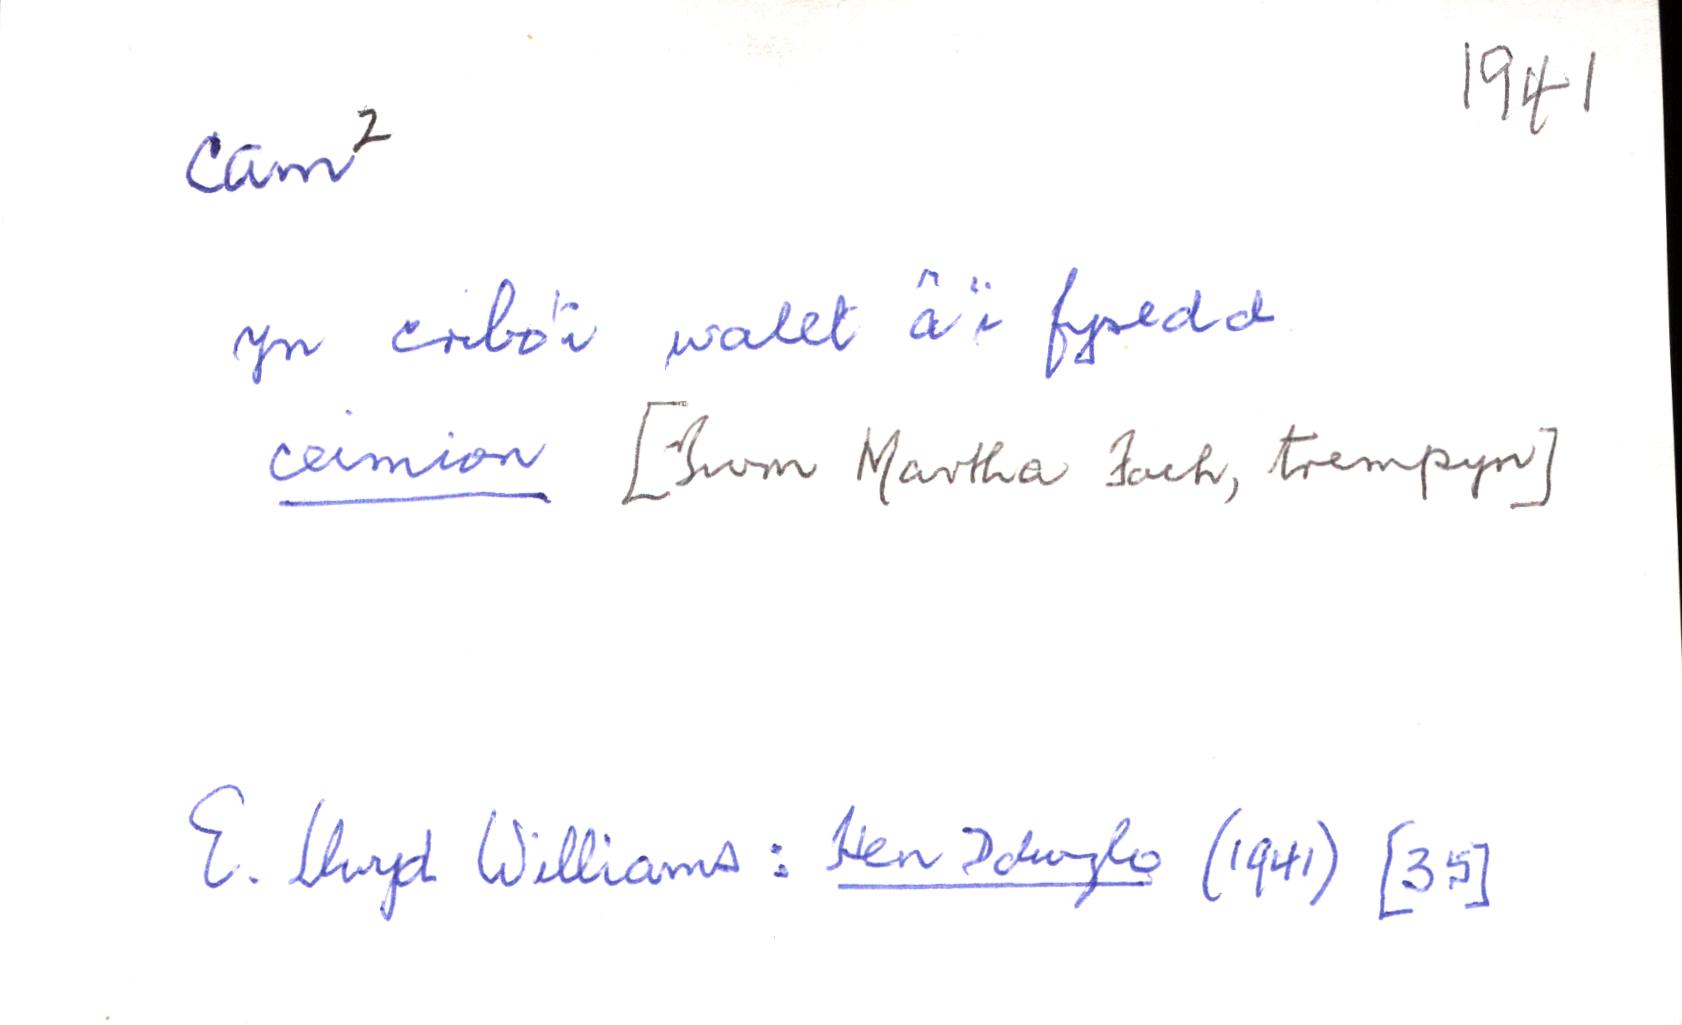 1941
cam²
yn cribo'i wallt â'i fysedd
ceimion [Twm Martha Fach, trempyn]
E. Llwyd Williams : Hen Ddwylo (1941) [35]